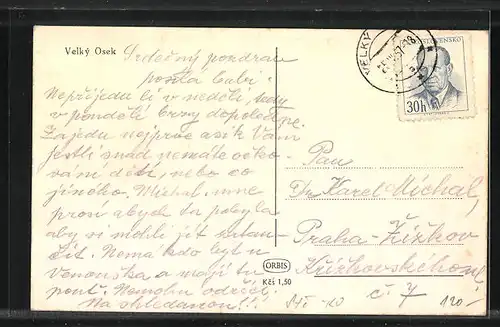 Velký Osek
Srdečný pozdrav
posílá babi.
Nepřijedu li v neděli, tedy
v pondělí brzy dopoledne.
Zajedu nejprve asi k Vám
jestli snad nemáte očko-
vání dětí, nebo co
jiného. Míchal. mne
prosí abych tu pobyla
aby si mohli jít
Nemá kdo být u
Venouška a mají tu
Nemohu odříci.
Na shledanou!!!
VELKÝ
ČESKOSLOVENSKO
30h
Pan
Dr. Karel Míchal,
Praha-Žižkov
Křížkovského
č. 7
ORBIS
Kčs 1,50
120-